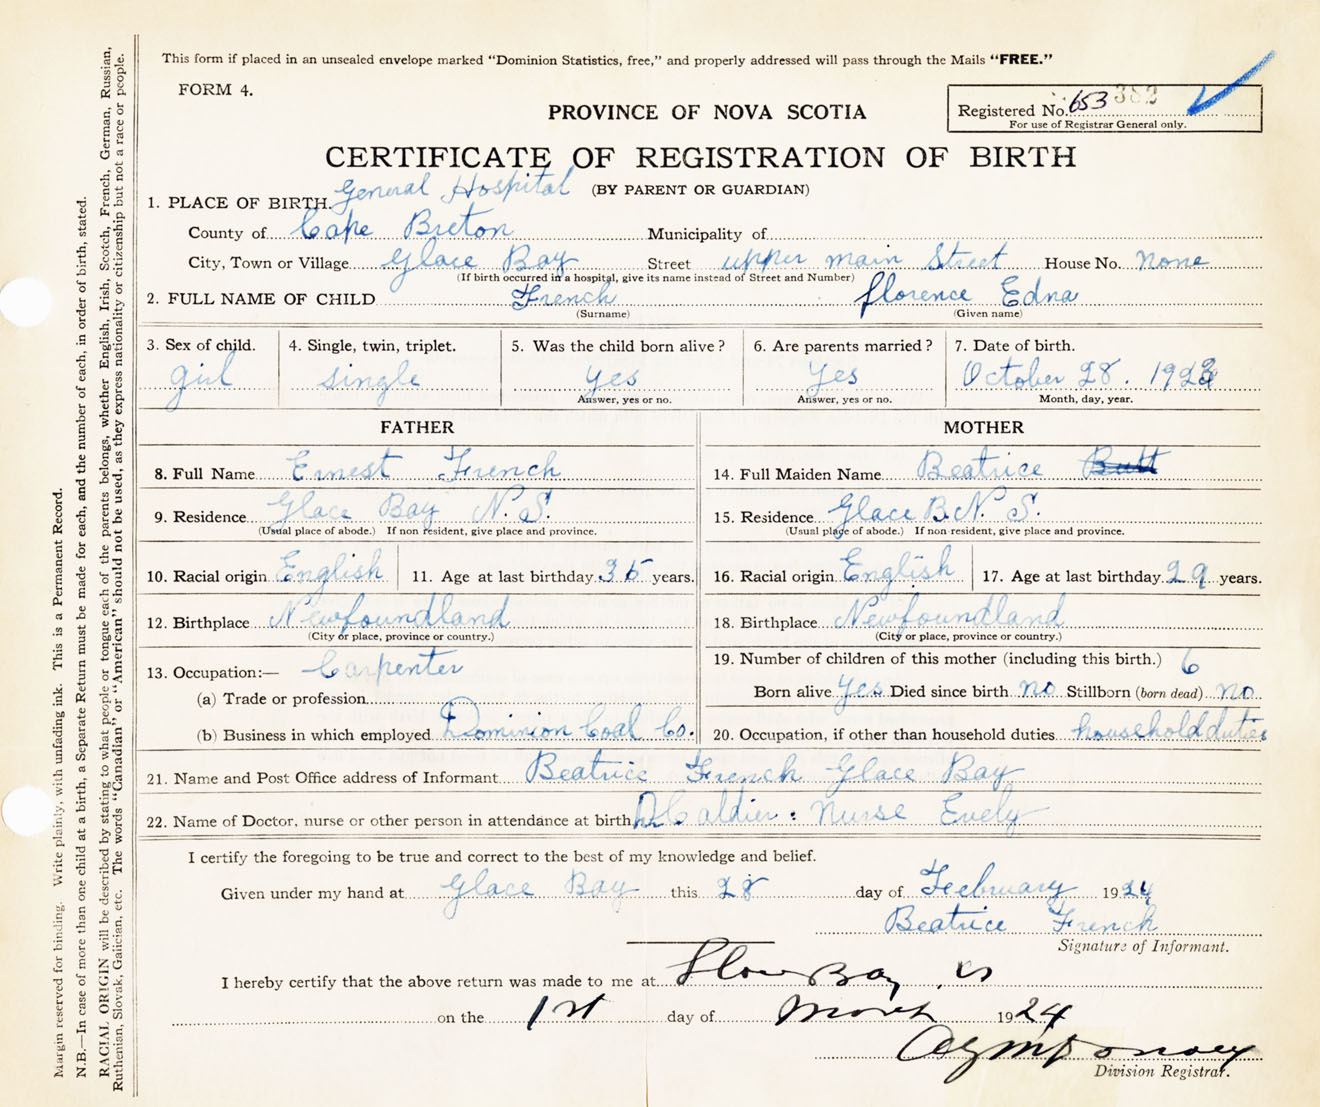 This form if placed in an unsealed envelope marked "Dominion Statistics, free," and properly addressed will pass through the Mails "FREE."
FORM 4.
PROVINCE OF NOVA SCOTIA
Registered No. 653 382
For use of Registrar General only.
CERTIFICATE OF REGISTRATION OF BIRTH
(BY PARENT OR GUARDIAN)
1. PLACE OF BIRTH. General Hospital
County of Cape Breton Municipality of
City, Town or Village Glace Bay Street upper main Street House No. none
(If birth occurred in a hospital, give its name instead of Street and Number)
2. FULL NAME OF CHILD French florence Edna
(Surname) (Given name)
3. Sex of child. 4. Single, twin, triplet. 5. Was the child born alive? 6. Are parents married? 7. Date of birth.
girl single yes yes October 28. 1923
Answer, yes or no. Answer, yes or no. Month, day, year.
FATHER MOTHER
8. Full Name Ernest French 14. Full Maiden Name Beatrice Butt
9. Residence Glace Bay N. S. 15. Residence Glace B. N. S.
(Usual place of abode.) If non resident, give place and province. (Usual place of abode.) If non resident, give place and province.
10. Racial origin English 11. Age at last birthday 35 years. 16. Racial origin English 17. Age at last birthday 29 years.
12. Birthplace Newfoundland 18. Birthplace Newfoundland
(City or place, province or country.) (City or place, province or country.)
13. Occupation:— Carpenter 19. Number of children of this mother (including this birth.) 6
(a) Trade or profession Born alive yes Died since birth no Stillborn (born dead) no
(b) Business in which employed Dominion Coal Co. 20. Occupation, if other than household duties household duties
21. Name and Post Office address of Informant Beatrice French Glace Bay
22. Name of Doctor, nurse or other person in attendance at birth Dr Calder: Nurse Evely
I certify the foregoing to be true and correct to the best of my knowledge and belief.
Given under my hand at Glace Bay this 28 day of February 1924
Beatrice French
Signature of Informant.
I hereby certify that the above return was made to me at Glace Bay
on the 1st day of March 1924
Division Registrar.
Margin reserved for binding. Write plainly, with unfading ink. This is a Permanent Record.
N.B.—In case of more than one child at a birth, a Separate Return must be made for each, and the number of each, in order of birth, stated.
RACIAL ORIGIN will be described by stating to what people or tongue each of the parents belongs, whether English, Irish, Scotch, French, German, Russian,
Ruthenian, Slovak, Galician, etc. The words "Canadian" or "American" should not be used, as they express nationality or citizenship but not a race or people.